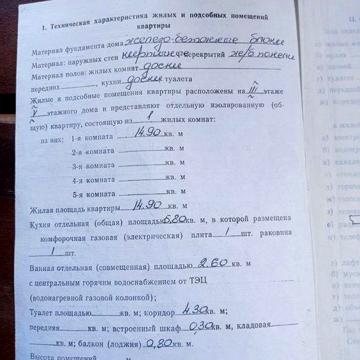 1. Техническая характеристика жилых и подсобных помещений
квартиры
Материал фундамента дома железо-бетонные блоки
Материал: наружных стен кирпичные перекрытий ж/б панели
Материал пола: жилых комнат доски
передних, кухни доски туалета
Жилые и подсобные помещения квартиры расположены на III этаже
V этажного дома и представляют отдельную изолированную (об-
щую) квартиру, состоящую из 1 жилых комнат:
из них: 1-я комната 14.90 кв. м
2-я комната кв. м
3-я комната кв. м
4-я комната кв. м
5-я комната кв. м
Жилая площадь квартиры 14.90 кв. м
Кухня отдельная (общая) площадью 6,80 кв. м, в которой размещена
комфорочная газовая (электрическая) плита 1 шт. раковина
1 шт.
Ванная отдельная (совмещенная) площадью 2.60 кв. м
с центральным горячим водоснабжением от ТЭЦ
(водонагревной газовой колонкой);
Туалет площадью кв. м; коридор 4.30 кв. м;
передняя кв. м; встроенный шкаф 0,30 кв. м, кладовая
кв. м; балкон (лоджия) 0,80 кв. м.
Высота помещений